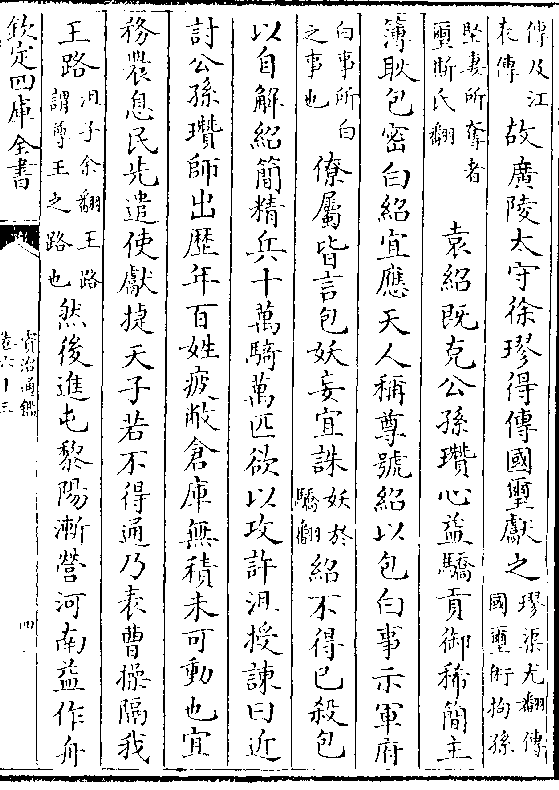 傳及江表傳故廣陵太守徐璆得傳國璽獻之璆渠尤翻傳國璽術拘孫
堅妻所奪者璽斯氏翻袁紹既克公孫瓚心益驕貢御稀簡主
簿耿包密白紹宜應天人稱尊號紹以包白事示軍府
白事所白之事也僚屬皆言包妖妄宜誅妖於驕翻紹不得已殺包
以自解紹簡精兵十萬騎萬匹欲以攻許沮授諫曰近
討公孫瓚師出歷年百姓疲敝倉庫無積未可動也宜
務農息民先遣使獻捷天子若不得通乃表曹操隔我
王路沮子余翻王路謂尊王之路也然後進屯黎陽漸營河南益作舟
欽定四庫全書
資治通鑑
卷六十三
四